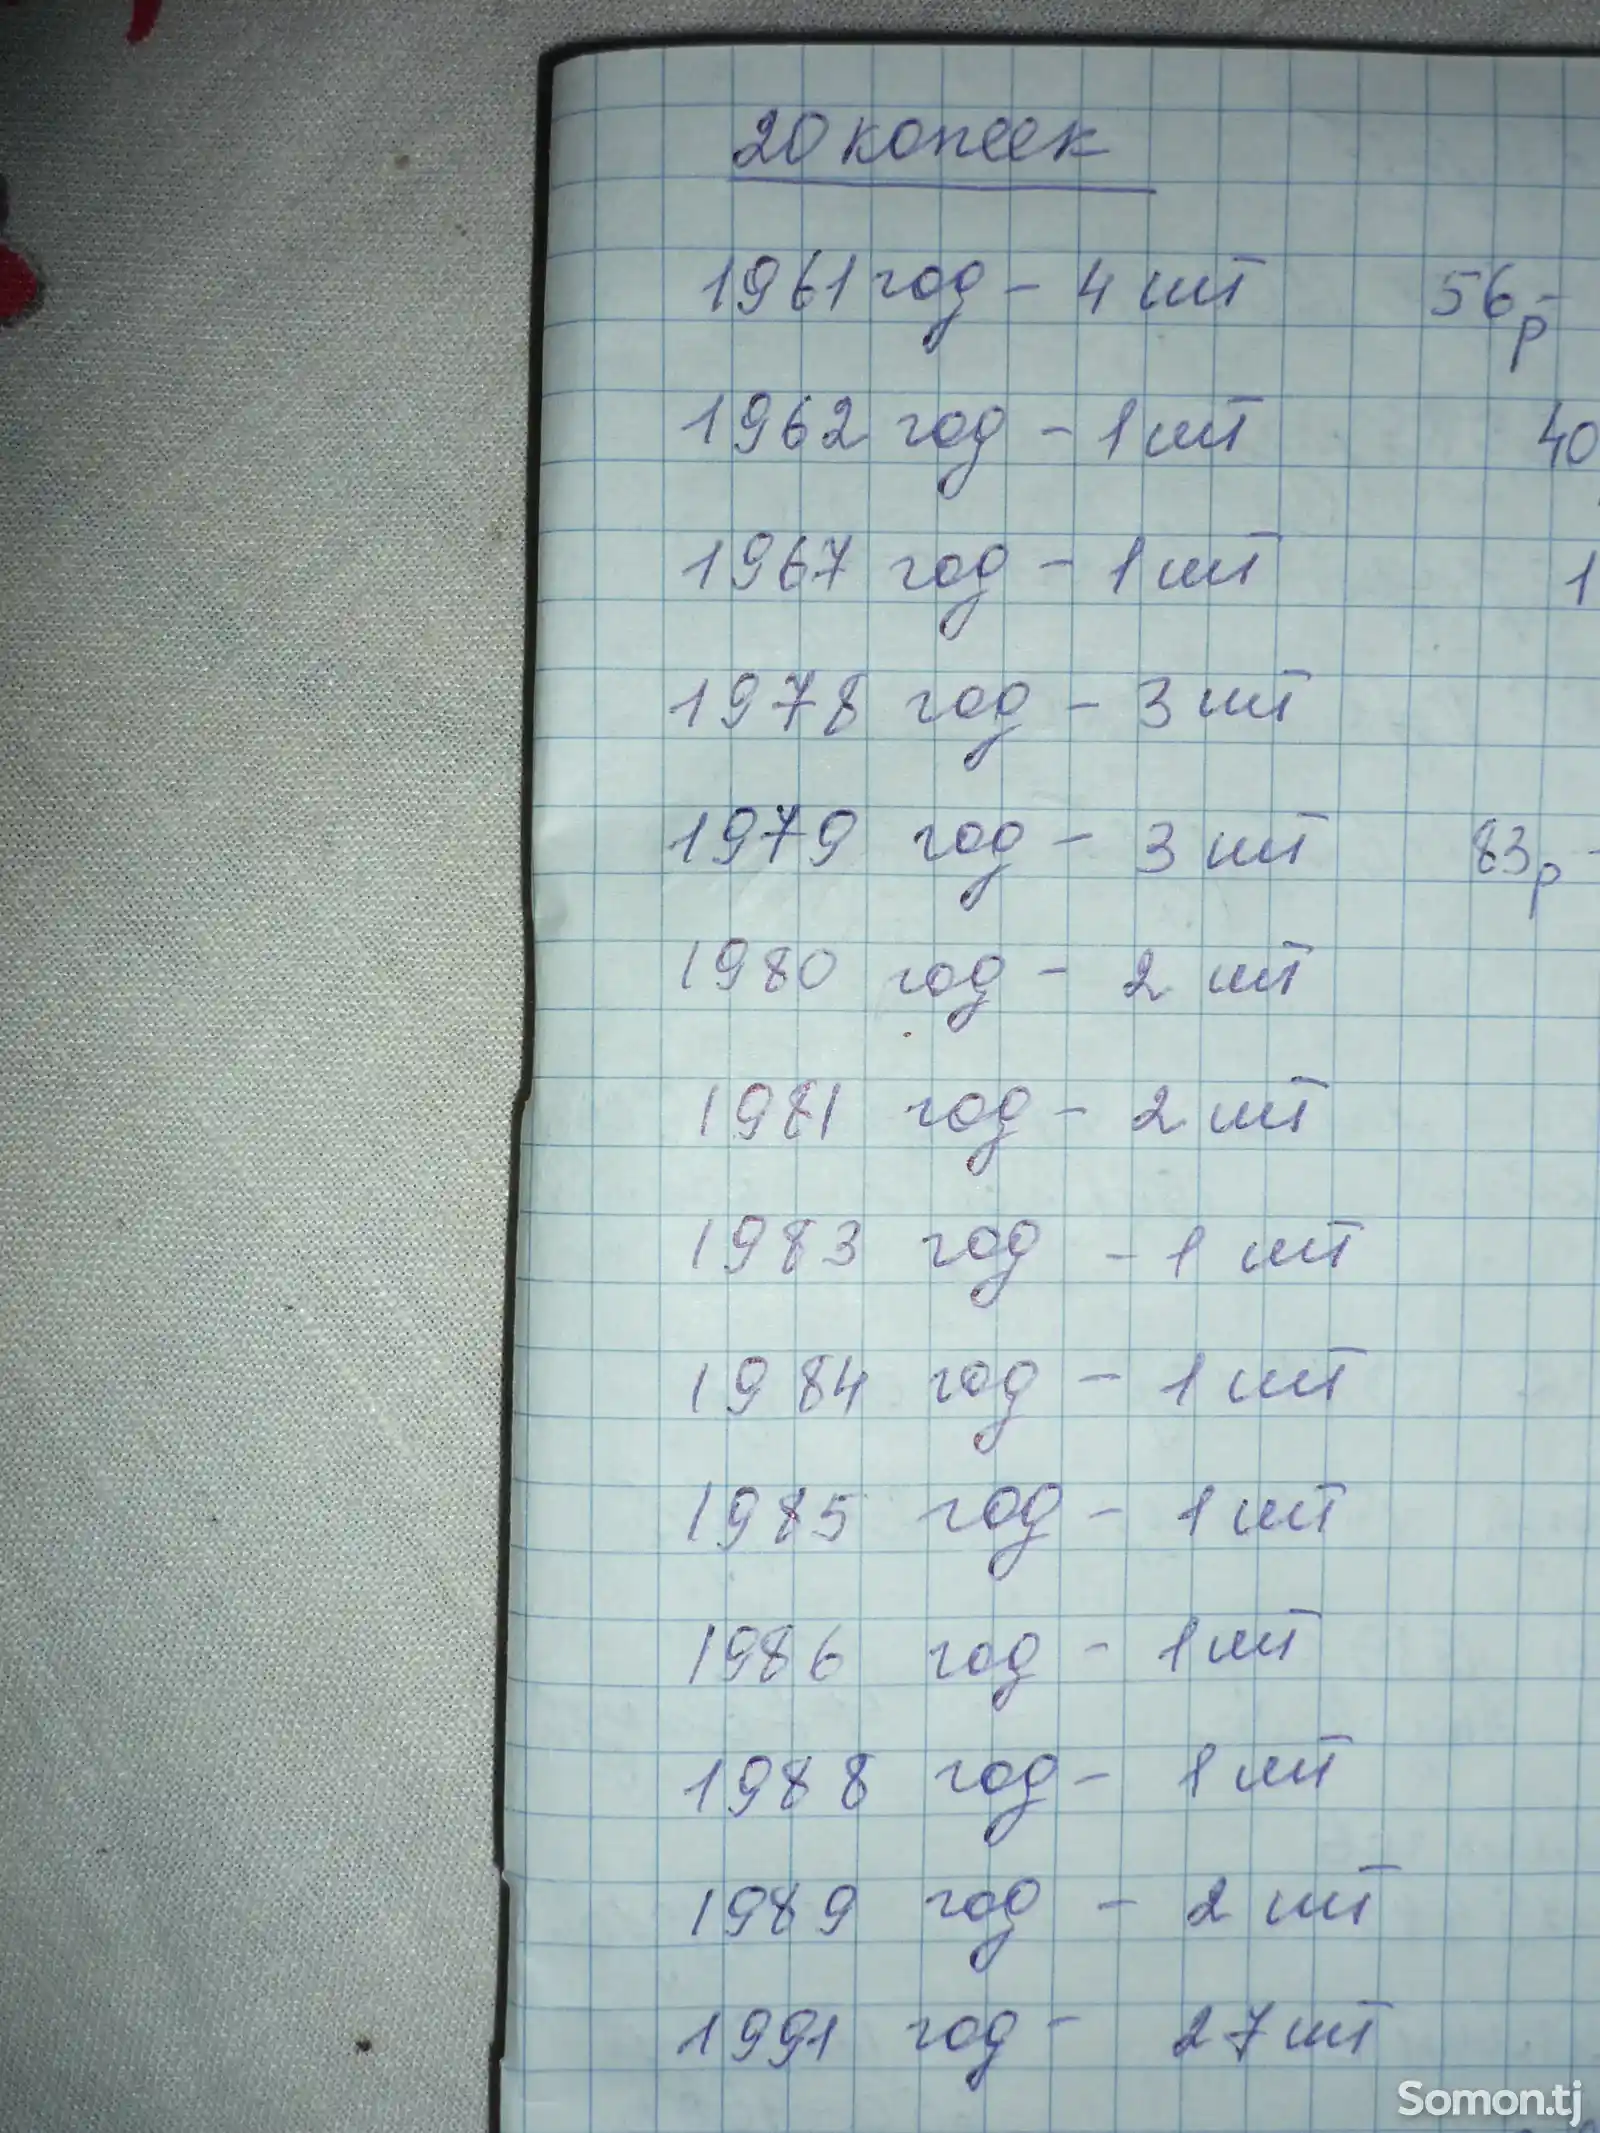 20 копеек
1961 год - 4 шт 56р-
1962 год - 1 шт 40
1967 год - 1 шт 1
1978 год - 3 шт
1979 год - 3 шт 83р -
1980 год - 2 шт
1981 год - 2 шт
1983 год - 1 шт
1984 год - 1 шт
1985 год - 1 шт
1986 год - 1 шт
1988 год - 1 шт
1989 год - 2 шт
1991 год - 27 шт
Somon.tj